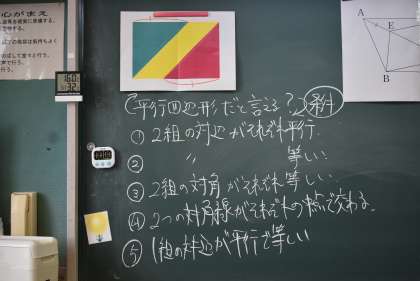 心がまえ
「平行四辺形だと言える?」条件
① 2組の対辺がそれぞれ平行.
② 〃 等しい
③ 2組の対角がそれぞれ等しい.
④ 2つの対角線がそれぞれの中点で交わる.
⑤ 1組の対辺が平行で等しい
A
E
B